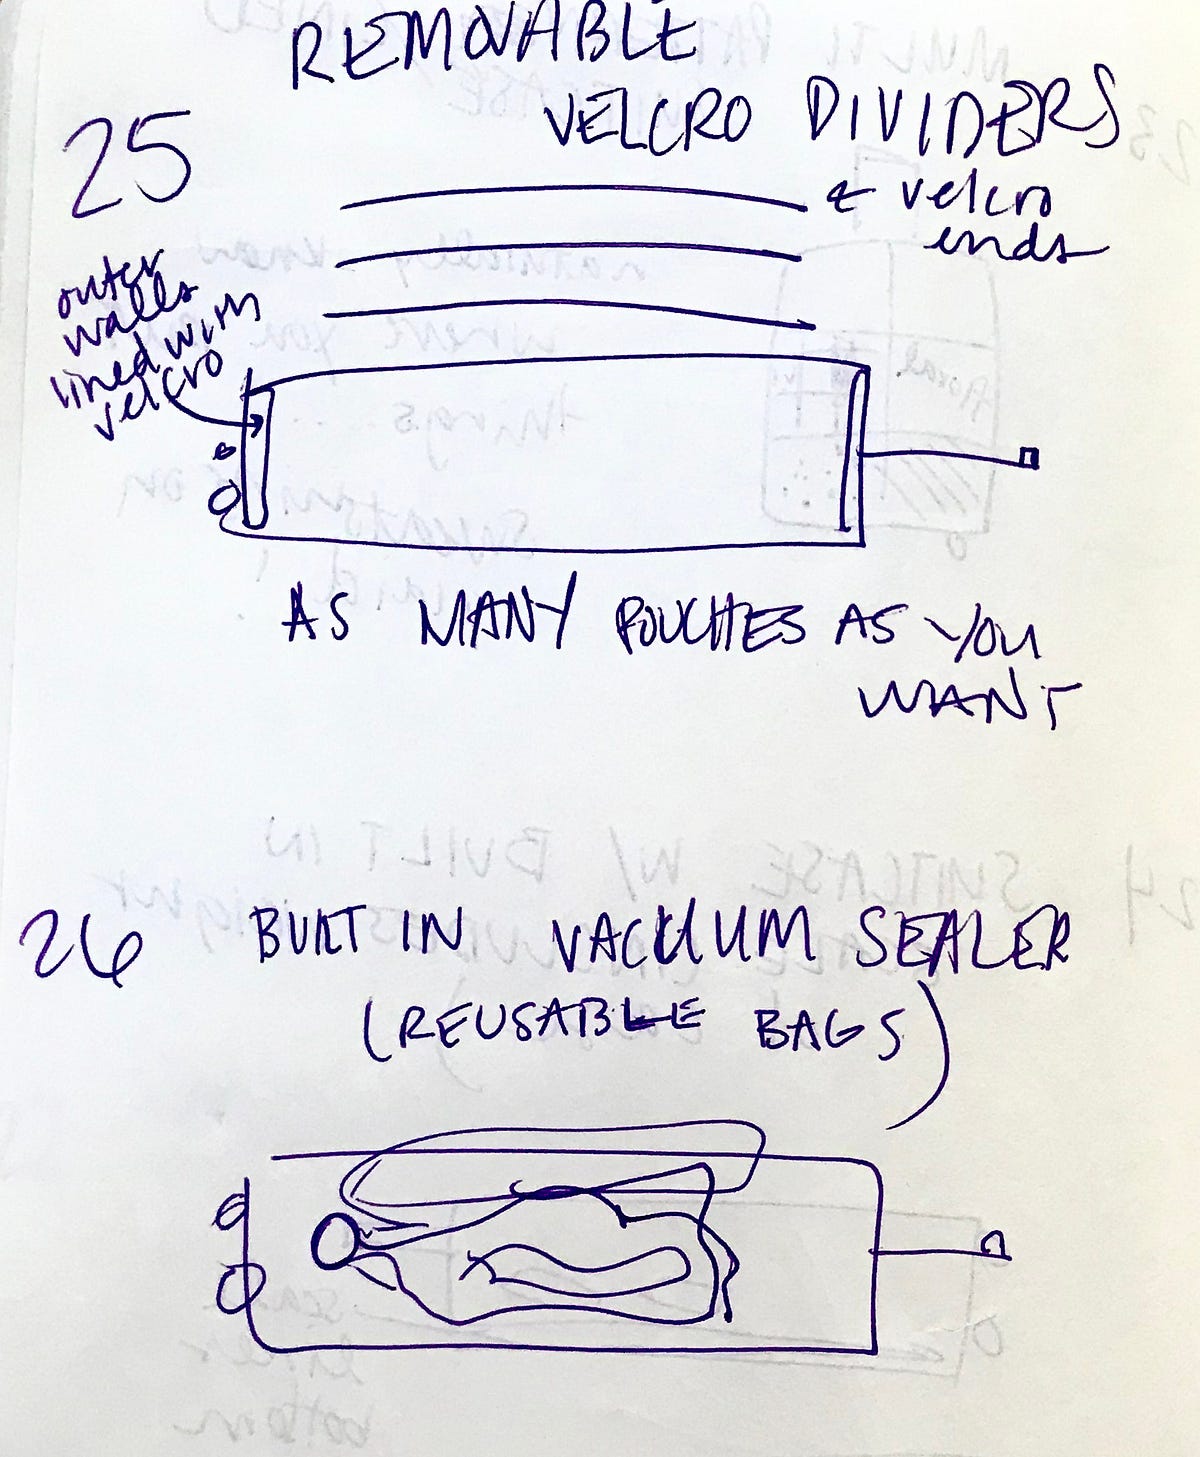 REMOVABLE
25
VELCRO DIVIDERS
← velcro
ends
outer
walls
lined with
velcro
AS MANY POUCHES AS YOU
WANT
26 BUILT IN VACUUM SEALER
(REUSABLE BAGS)